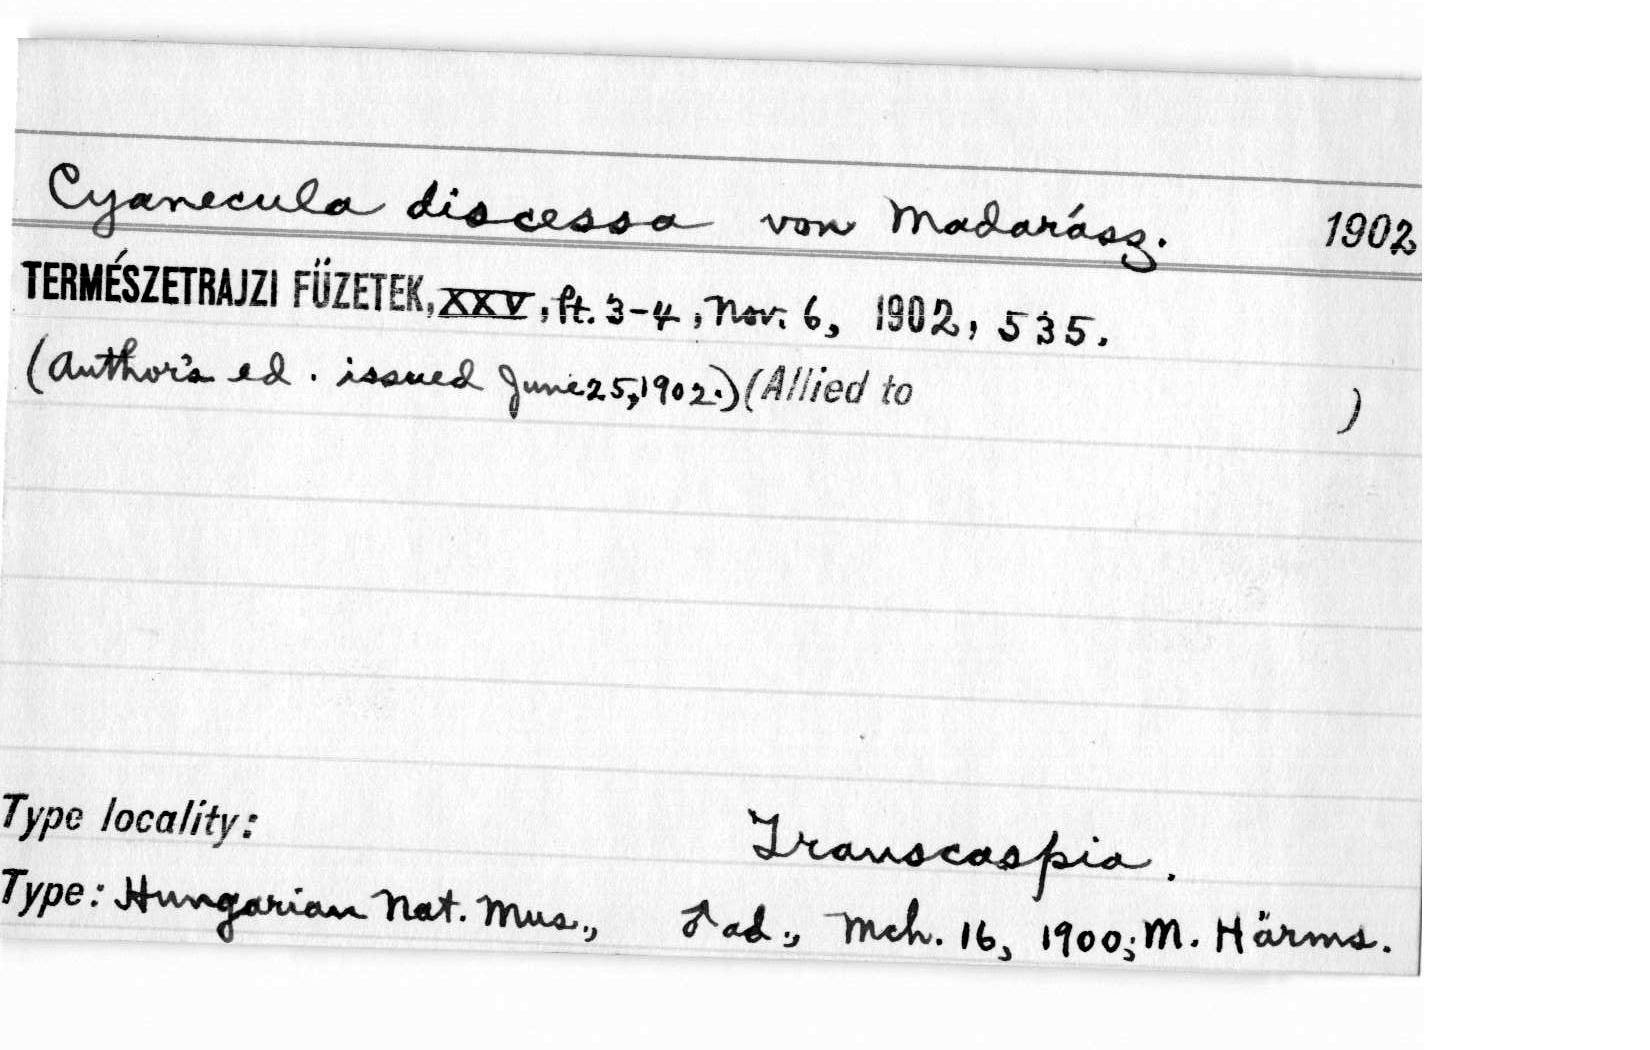 Cyanecula discessa von Madarász. 1902
TERMÉSZETRAJZI FÜZETEK, XXV, Pt. 3-4, Nov. 6, 1902, 535.
(Author's ed. issued June 25, 1902.) (Allied to )
Type locality: Transcaspia.
Type: Hungarian Nat. Mus., ♂ ad., Mch. 16, 1900; M. Härms.